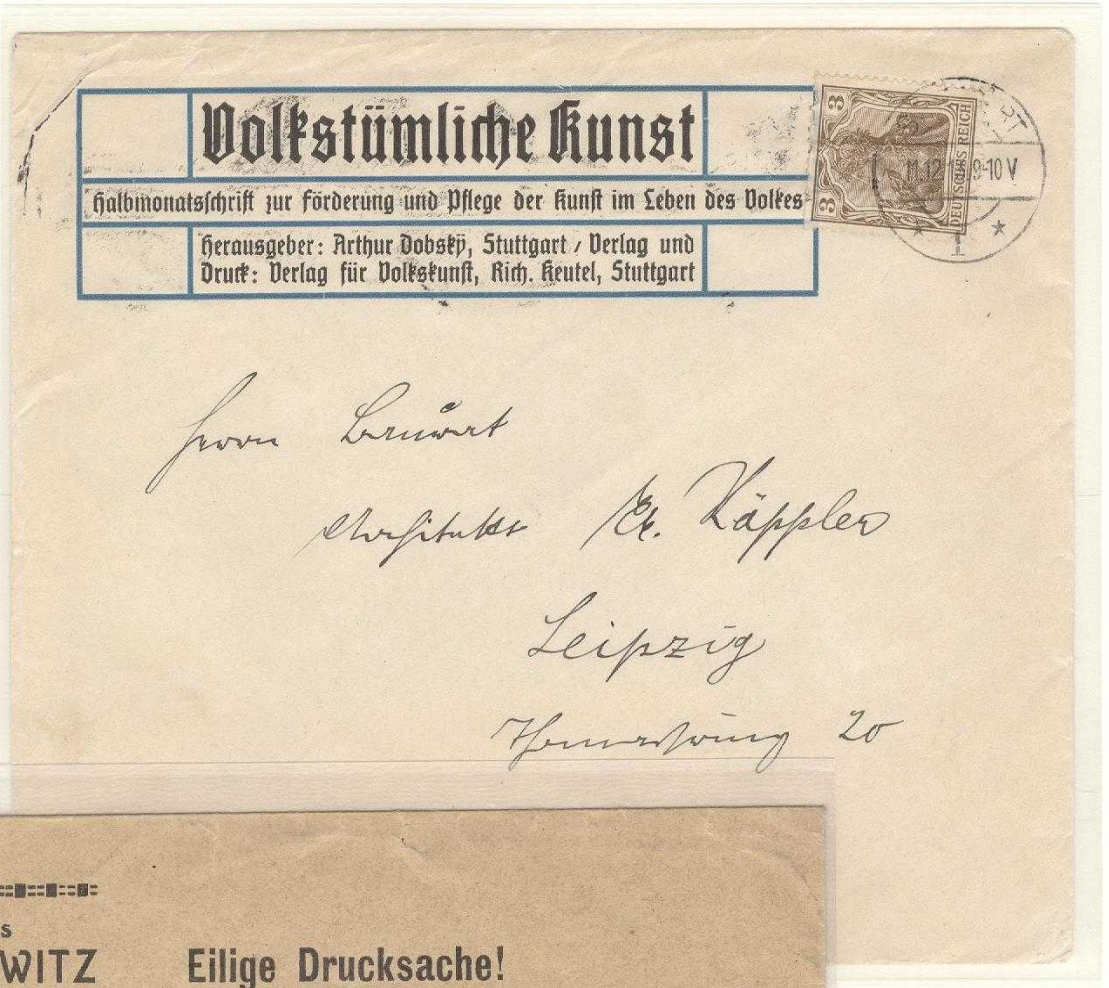 Volkstümliche Kunst
Halbmonatsschrift zur Förderung und Pflege der Kunst im Leben des Volkes
Herausgeber: Arthur Dobský, Stuttgart / Verlag und
Druck: Verlag für Volkskunst, Rich. Keutel, Stuttgart
3
3
DEUTSCHES REICH
11.12.
9-10 V
Herrn Baurat
Architekt Fr. Käppler
Leipzig
Thomasring 20
s
WITZ Eilige Drucksache!